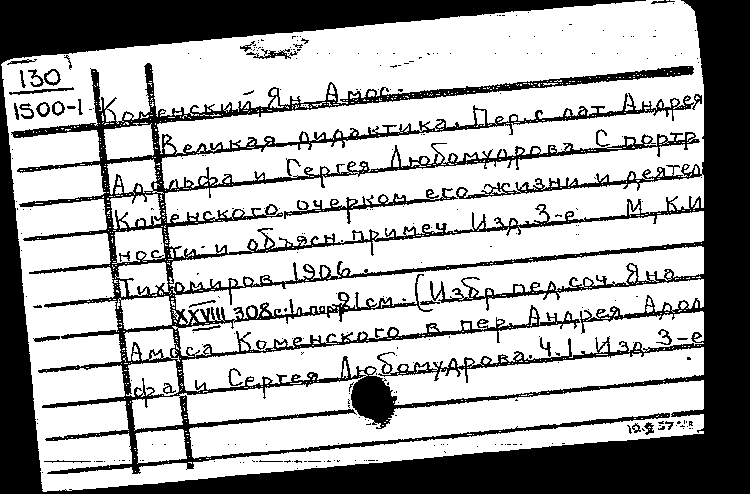 130
1500-1
Коменский, Ян Амос.
Великая дидактика. Пер. с лат. Андрея
Адольфа и Сергея Любомудрова. С портр.
Коменского, очерком его жизни и деятель
ности и объясн. примеч. Изд. 3-е М., К.И
Тихомиров, 1906.
XXVIII, 308 с.; 1 л. портр. 21 см. (Избр. пед. соч. Яна
Амоса Коменского в пер. Андрея Адоль
фа и Сергея Любомудрова. Ч. 1. Изд. 3-е